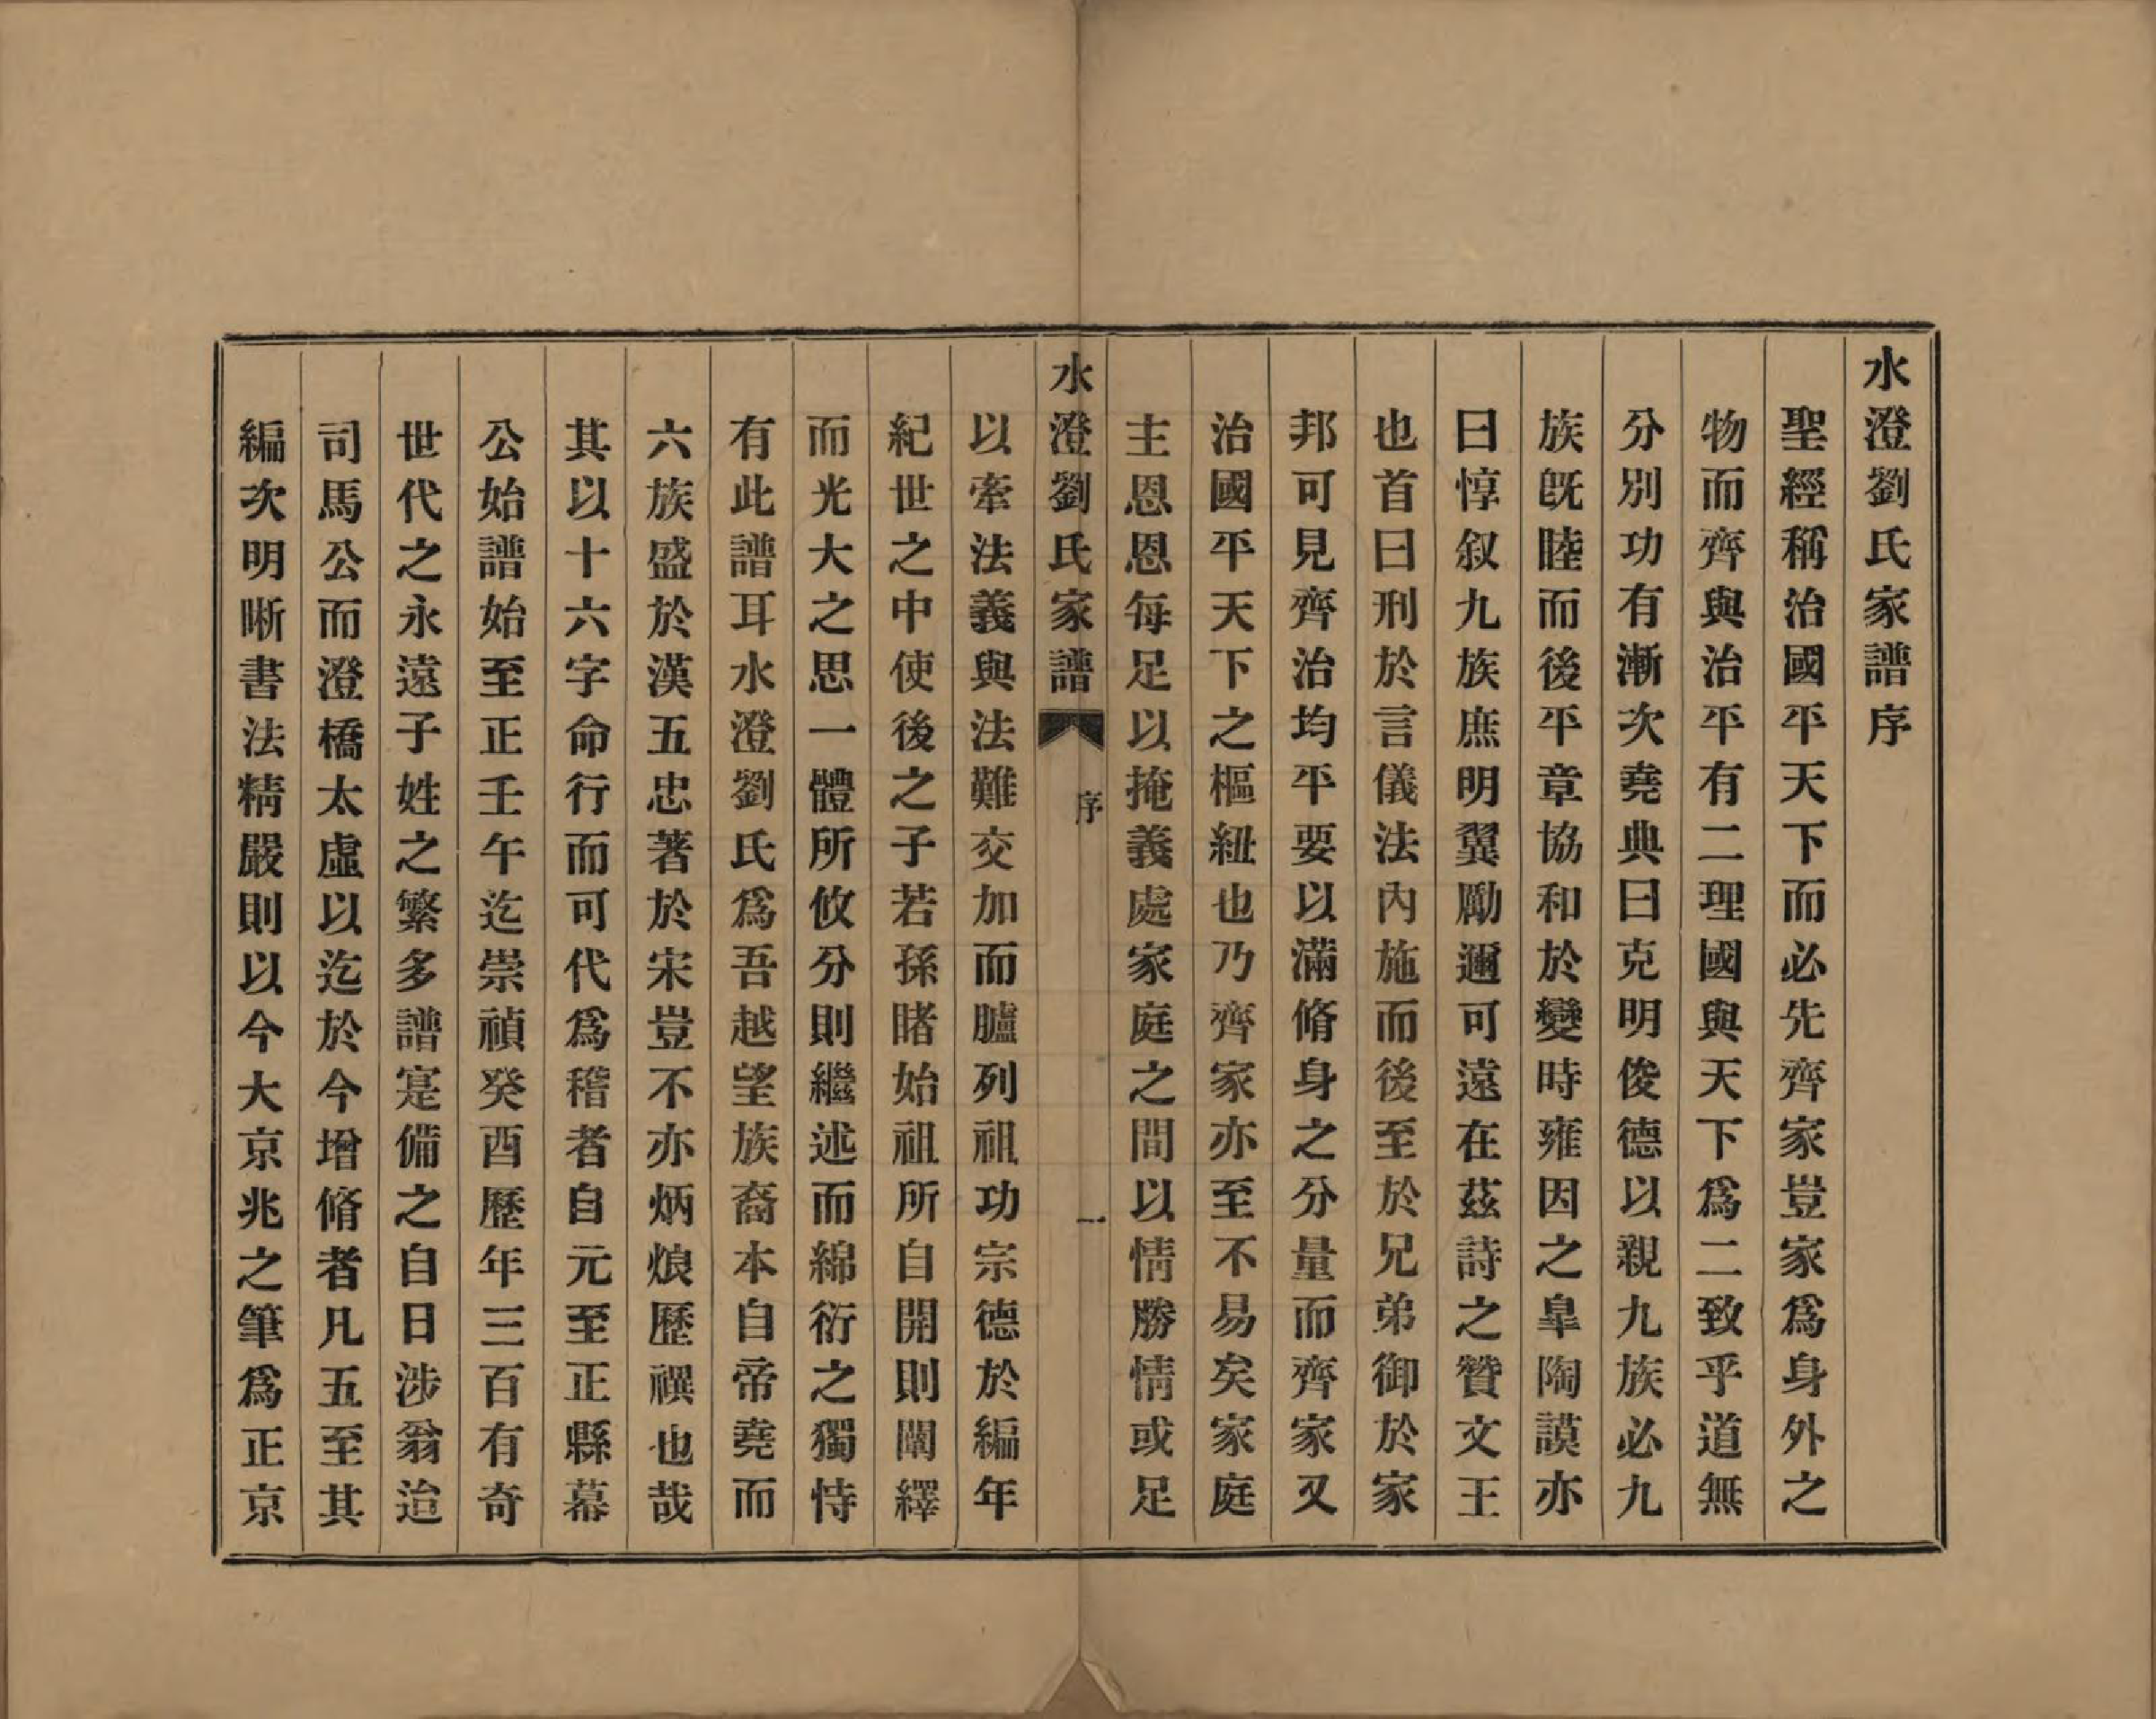 水澄劉氏家譜序
聖經稱治國平天下而必先齊家豈家爲身外之
物而齊與治平有二理國與天下爲二致乎道無
分別功有漸次堯典曰克明俊德以親九族必九
族既睦而後平章協和於變時雍因之臯陶謨亦
曰惇叙九族庶明翼勵邇可遠在茲詩之贊文王
也首曰刑於言儀法內施而後至於兄弟御於家
邦可見齊治均平要以滿脩身之分量而齊家又
治國平天下之樞紐也乃齊家亦至不易矣家庭
主恩恩每足以掩義處家庭之間以情勝情或足
水澄劉氏家譜 序 一
以牽法義與法難交加而臚列祖功宗德於編年
紀世之中使後之子若孫睹始祖所自開則闡繹
而光大之思一體所攸分則繼述而綿衍之獨恃
有此譜耳水澄劉氏爲吾越望族裔本自帝堯而
六族盛於漢五忠著於宋豈不亦炳烺歷禩也哉
其以十六字命行而可代爲稽者自元至正縣幕
公始譜始至正壬午迄崇禎癸酉歷年三百有奇
世代之永遠子姓之繁多譜寔備之自日涉翁迨
司馬公而澄橋太虛以迄於今增脩者凡五至其
編次明晰書法精嚴則以今大京兆之筆爲正京